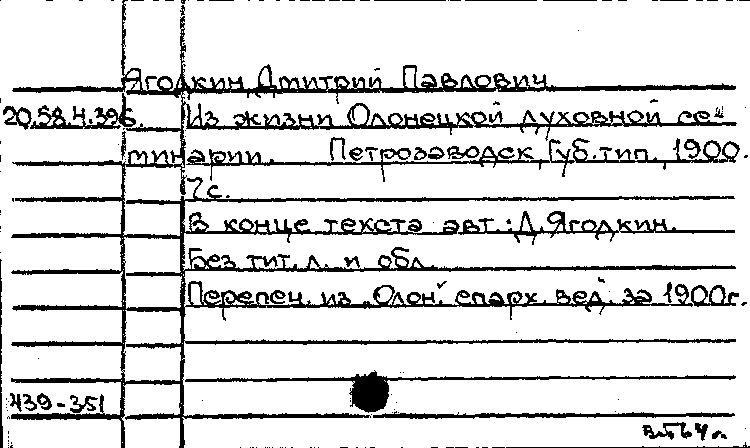 Ягодкин, Дмитрий Павлович.
20.58.4.396. Из жизни Олонецкой духовной се-
минарии. Петрозаводск, Губ. тип., 1900.
7 с.
В конце текста авт.: Д. Ягодкин.
Без тит. л. и обл.
Перепеч. из „Олон. епарх. вед." за 1900г.
439-351